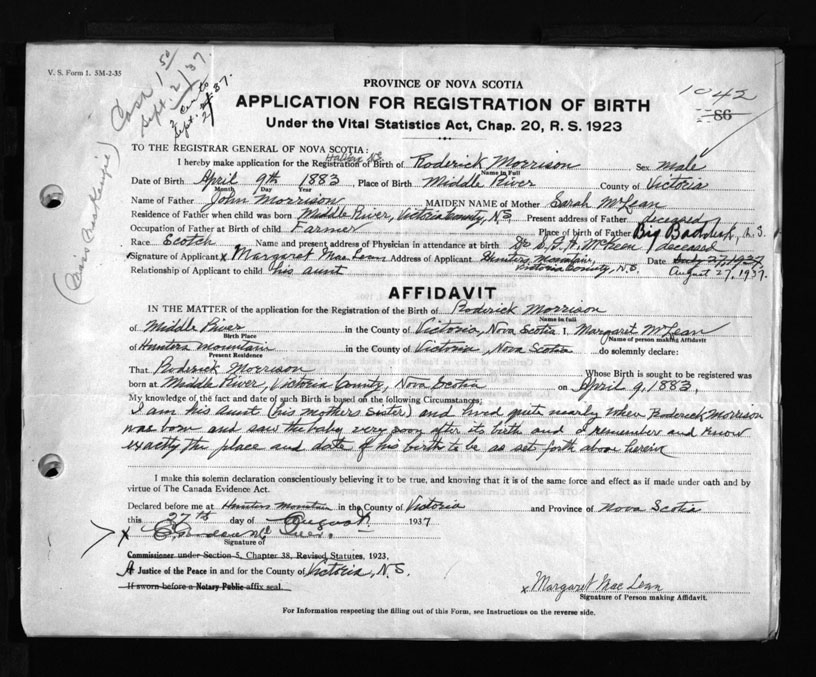 V. S. Form 1. 5M-2-35
Cash 1.50
Sept. 2/37
Sept. 37.
PROVINCE OF NOVA SCOTIA
1042
86
APPLICATION FOR REGISTRATION OF BIRTH
Under the Vital Statistics Act, Chap. 20, R. S. 1923
TO THE REGISTRAR GENERAL OF NOVA SCOTIA:
I hereby make application for the Registration of Birth of Roderick Morrison Sex male
Name in Full
Date of Birth April 9th 1883 Place of Birth Middle River County of Victoria
Month Day Year
Name of Father John Morrison MAIDEN NAME of Mother Sarah McLean
Residence of Father when child was born Middle River, Victoria County, N.S. Present address of Father deceased
Occupation of Father at Birth of child Farmer Place of birth of Father Big Baddeck, N.S.
Race Scotch Name and present address of Physician in attendance at birth Dr McKeen deceased
Signature of Applicant x Margaret Mac Lean Address of Applicant Hunters Mountain, Date July 27, 1937
Victoria County, N.S. August 27, 1937.
Relationship of Applicant to child his aunt
AFFIDAVIT
IN THE MATTER of the application for the Registration of the Birth of Roderick Morrison
Name in full
of Middle River in the County of Victoria, Nova Scotia I, Margaret McLean
Birth Place Name of person making Affidavit
of Hunters mountain in the County of Victoria, Nova Scotia do solemnly declare:
Present Residence
That Roderick Morrison Whose Birth is sought to be registered was
born at Middle River, Victoria County, Nova Scotia on April 9, 1883.
My knowledge of the fact and date of such Birth is based on the following Circumstances;
I am his aunt (his mothers sister) and lived quite nearly when Roderick Morrison
was born and saw the baby very soon after its birth and I remember and know
exactly the place and date of his birth to be as set forth above herein
I make this solemn declaration conscientiously believing it to be true, and knowing that it is of the same force and effect as if made under oath and by
virtue of The Canada Evidence Act.
Declared before me at Hunters Mountain in the County of Victoria and Province of Nova Scotia
this 27th day of August 1937
x
Signature of
Commissioner under Section 5, Chapter 38, Revised Statutes, 1923.
A Justice of the Peace in and for the County of Victoria, N.S.
If sworn before a Notary Public affix seal.
x Margaret Mac Lean
Signature of Person making Affidavit.
For Information respecting the filling out of this Form, see Instructions on the reverse side.